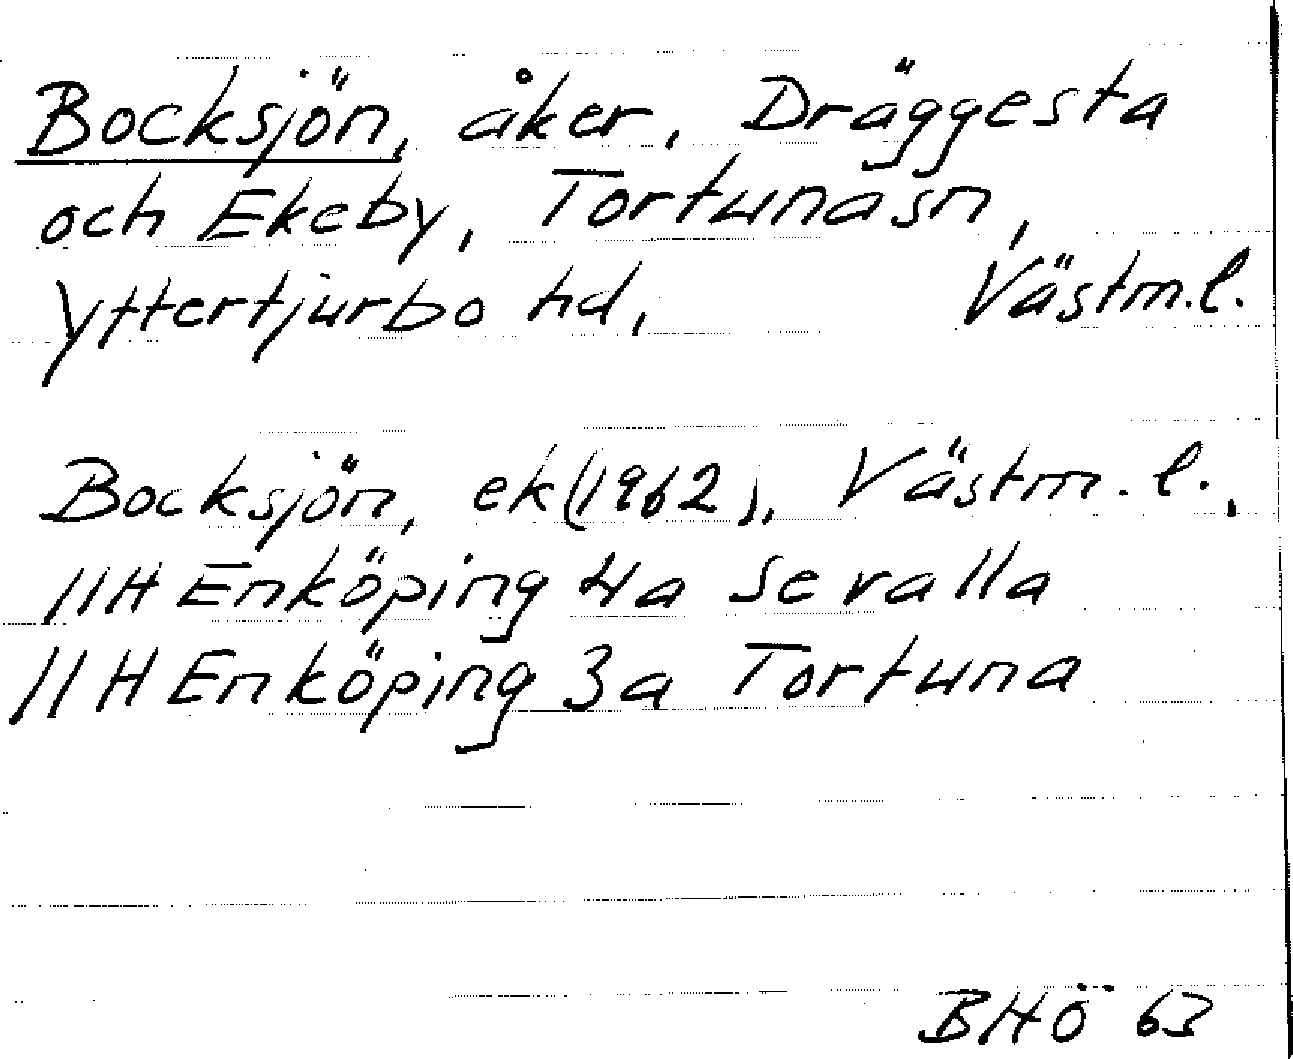 Bocksjön, åker, Dräggesta
och Ekeby, Tortuna sn,
Yttertjurbo hd, Västm.l.
Bocksjön, ek (1962), Västm.l.,
11H Enköping 4a Sevalla
11H Enköping 3a Tortuna
BHÖ 63